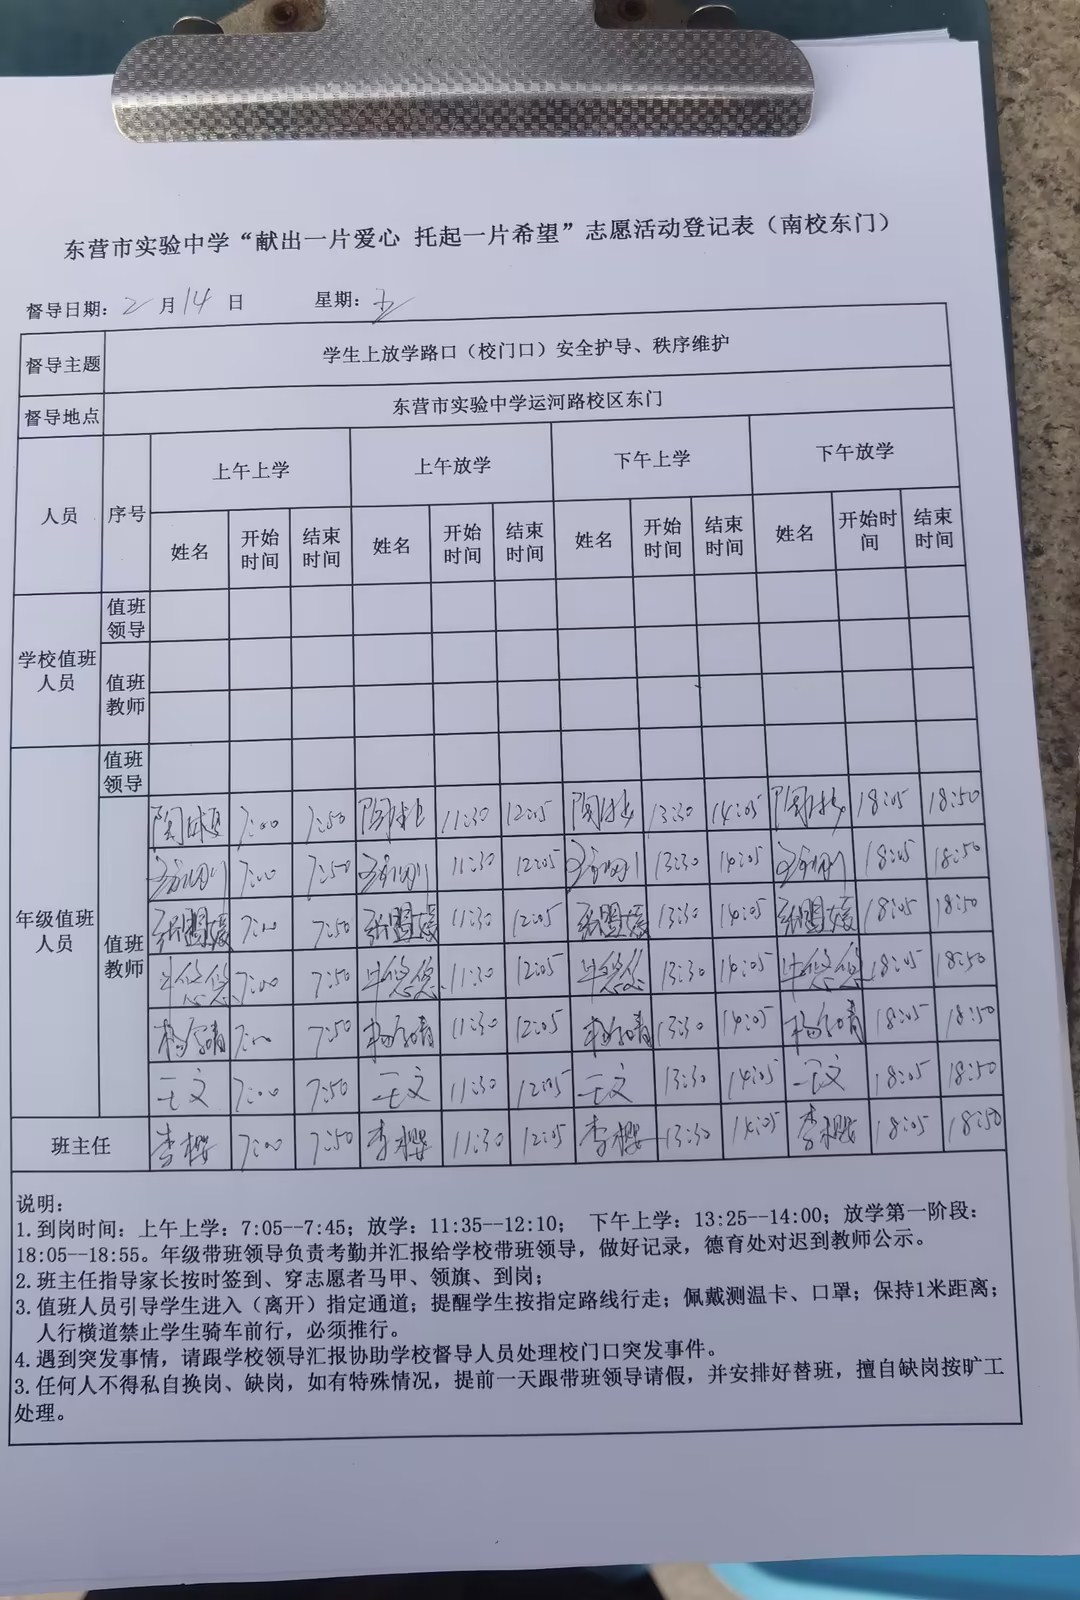 东营市实验中学“献出一片爱心 托起一片希望”志愿活动登记表（南校东门）
督导日期：2月14日 星期：五
督导主题 学生上放学路口（校门口）安全护导、秩序维护
督导地点 东营市实验中学运河路校区东门
人员 序号 上午上学 上午放学 下午上学 下午放学
姓名 开始时间 结束时间 姓名 开始时间 结束时间 姓名 开始时间 结束时间 姓名 开始时间 结束时间
学校值班人员 值班领导
值班教师
年级值班人员 值班领导
值班教师
7:00 7:50 11:30 12:05 13:30 14:05 18:05 18:50
7:00 7:50 11:30 12:05 13:30 14:05 18:05 18:50
张盟媛 7:00 7:50 张盟媛 11:30 12:05 张盟媛 13:30 14:05 张盟媛 18:05 18:50
牛悠悠 7:00 7:50 牛悠悠 11:30 12:05 牛悠悠 13:30 14:05 牛悠悠 18:05 18:50
7:00 7:50 11:30 12:05 13:30 14:05 18:05 18:50
王文 7:00 7:50 王文 11:30 12:05 王文 13:30 14:05 王文 18:05 18:50
班主任 李樱 7:00 7:50 李樱 11:30 12:05 李樱 13:30 14:05 李樱 18:05 18:50
说明：
1.到岗时间：上午上学：7:05--7:45；放学：11:35--12:10； 下午上学：13:25--14:00；放学第一阶段：
18:05--18:55。年级带班领导负责考勤并汇报给学校带班领导，做好记录，德育处对迟到教师公示。
2.班主任指导家长按时签到、穿志愿者马甲、领旗、到岗；
3.值班人员引导学生进入（离开）指定通道；提醒学生按指定路线行走；佩戴测温卡、口罩；保持1米距离；
人行横道禁止学生骑车前行，必须推行。
4.遇到突发事情，请跟学校领导汇报协助学校督导人员处理校门口突发事件。
3.任何人不得私自换岗、缺岗，如有特殊情况，提前一天跟带班领导请假，并安排好替班，擅自缺岗按旷工
处理。